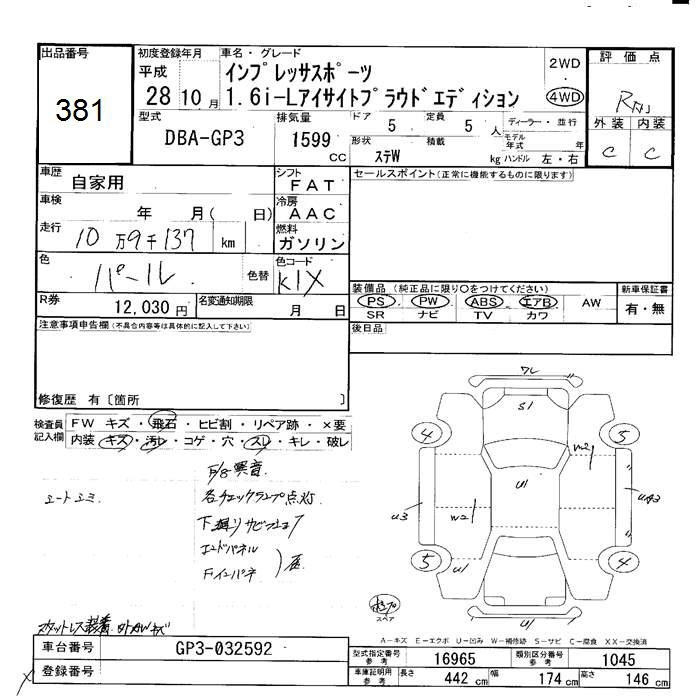 出品番号
381
初度登録年月
平成
28 10 月
車名・グレード
インプレッサスポーツ
1.6i-Lアイサイトプラウドエディション
2WD
4WD
評価点
外装 内装
C C
型式
DBA-GP3
排気量
1599
CC
ドア 5 定員 5 人
形状 ステW 積載 kg
ディーラー・並行
モデル年式 年
ハンドル 左・右
車歴
自家用
シフト
FAT
車検
年 月( 日)
冷房
AAC
走行
10万9千137 km
燃料
ガソリン
色
パール
色替
色コード
K1X
R券
12,030 円
名変通知期限
月 日
セールスポイント(正常に機能するものに限ります)
装備品 (純正品に限り○をつけてください)
新車保証書
PS PW ABS エアB AW
SR ナビ TV カワ
有・無
後日品
注意事項申告欄(不具合内容等は具体的に記入して下さい)
修復歴 有〔箇所 〕
検査員記入欄
FW キズ・飛石・ヒビ割・リペア跡・×要
内装・キズ・汚レ・コゲ・穴・スレ・キレ・破レ
F/G異音
各チェックランプ点灯
エンドパネル
Fインパネ
ワレ
S1
4
5
W2
U1
U3
W2
5
U1
4
スペア
A-キズ E-エクボ U-凹み W-補修跡 S-サビ C-腐食 XX-交換済
車台番号
GP3-032592
登録番号
型式指定番号 参考
16965
類別区分番号 参考
1045
車庫証明用 参考
長さ 442 cm 幅 174 cm 高さ 146 cm